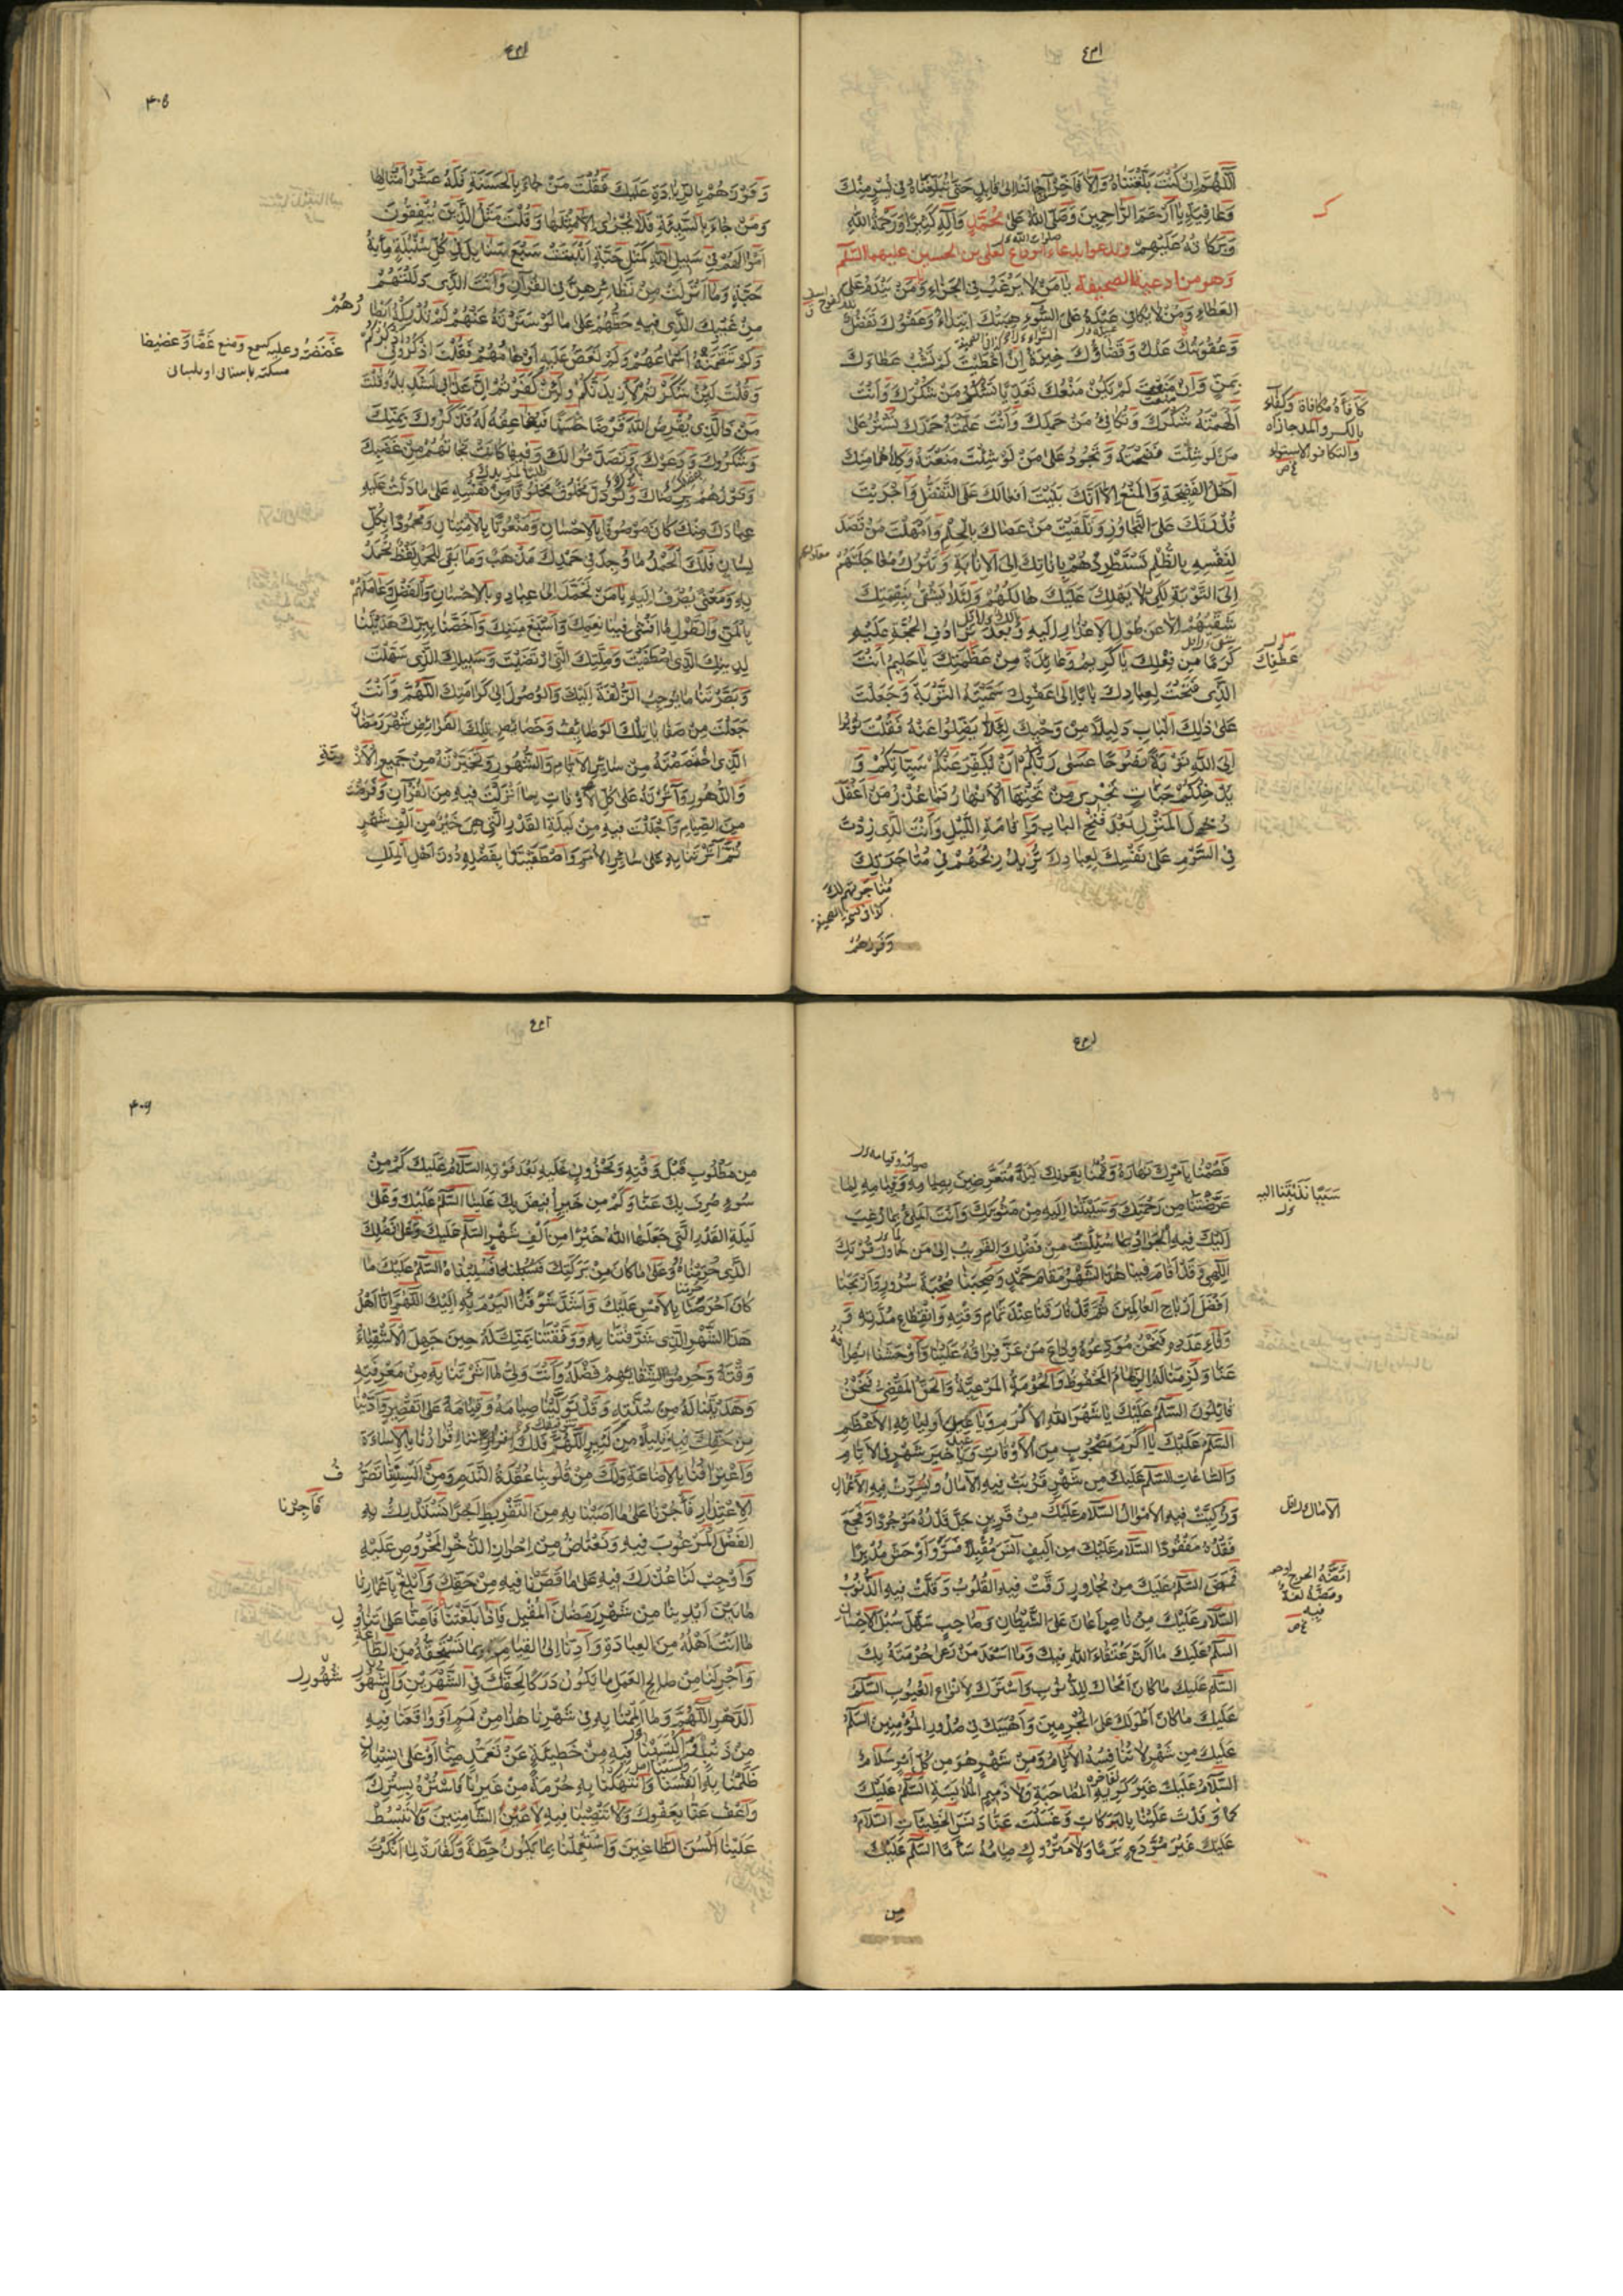 اللّٰهُمَّ اِنْ كُنْتَ بَلَّغْتَنَاهُ وَاِلَّا فَاَخِّرْ اٰجالَنا اِلٰى قابِلٍ حَتّٰى تُبَلِّغَناهُ فى يُسْرٍ مِنْكَ
وَعافِيَةٍ يا اَرْحَمَ الرّٰاحِمِينَ وَصَلَّى اللهُ عَلىٰ مُحَمَّدٍ وَآلِهِ كَثِيرًا وَرَحْمَةُ اللهِ
وَبَرَكاتُهُ عَلَيْهِمْ ويدعوا بدعاء الوداع لعلى بن الحسين عليهما السّلم
وهو من ادعية الصحيفة يا مَنْ لا يَرْغَبُ فى الجَزاءِ وَمَنْ لا يَنْدَمُ عَلَى
العَطاءِ وَمَنْ لا يُكافى عَبْدَهُ عَلَى السَّواءِ هِبَتُكَ ابْتِداءٌ وَعَفْوُكَ تَفَضُّلٌ
وَعُقُوبَتُكَ عَدْلٌ وَقَضاؤُكَ خِيَرَةٌ اِنْ اَعْطَيْتَ لَمْ تَشُبْ عَطاءَكَ
بِمَنٍّ وَاِنْ مَنَعْتَ لَمْ يَكُنْ مَنْعُكَ تَعَدِّيًا تَشْكُرُ مَنْ شَكَرَكَ وَاَنْتَ
اَلْهَمْتَهُ شُكْرَكَ وَتُكافِى مَنْ حَمِدَكَ وَاَنْتَ عَلَّمْتَهُ حَمْدَكَ تَسْتُرُ عَلىٰ
مَنْ لَوْ شِئْتَ فَضَحْتَهُ وَتَجُودُ عَلىٰ مَنْ لَوْ شِئْتَ مَنَعْتَهُ وَكِلاهُما مِنْكَ
اَهْلُ الفَضِيحَةِ وَالْمَنْعِ اِلّا اَنَّكَ بَنَيْتَ اَفعالَكَ عَلَى التَّفَضُّلِ وَاَجْرَيْتَ
قُدْرَتَكَ عَلَى التَّجاوُزِ وَتَلَقَّيْتَ مَنْ عَصاكَ بِالْحِلْمِ وَاَمْهَلْتَ مَنْ قَصَدَ
لِنَفْسِهِ بِالظُّلْمِ تَسْتَنْظِرُهُمْ بِاَناتِكَ اِلَى الاِنابَةِ وَتَتْرُكُ مُعاجَلَتَهُمْ
اِلَى التَّوْبَةِ لِكَيْ لا يَهْلِكَ عَلَيْكَ هالِكُهُمْ وَلِئَلّا يَشْقىٰ بِنِقْمَتِكَ
شَقِيُّهُمْ اِلّا عَنْ طُولِ الاِعْذارِ اِلَيْهِ وَبَعْدَ تَرادُفِ الحُجَّةِ عَلَيْهِ
كَرَمًا مِنْ فِعْلِكَ يا كَرِيمُ وَعائِدَةً مِنْ عَظَمَتِكَ يا حَلِيمُ اَنْتَ
الَّذى فَتَحْتَ لِعِبادِكَ بابًا اِلىٰ عَفْوِكَ سَمَّيْتَهُ التَّوْبَةَ وَجَعَلْتَ
عَلىٰ ذٰلِكَ البابِ دَلِيلًا مِنْ وَحْيِكَ لِئَلّا يَضِلُّوا عَنْهُ فَقُلْتَ تُوبُوا
اِلَى اللهِ تَوْبَةً نَصُوحًا عَسٰى رَبُّكُمْ اَنْ يُكَفِّرَ عَنْكُمْ سَيِّئاتِكُمْ وَ
يُدْخِلَكُمْ جَنّاتٍ تَجْرِى مِنْ تَحْتِهَا الاَنْهارُ فَما عُذْرُ مَنْ اَغْفَلَ
دُخُولَ المَنْزِلِ بَعْدَ فَتْحِ البابِ وَاِقامَةِ الدَّلِيلِ وَاَنْتَ الَّذى زِدْتَ
فِى السَّوْمِ عَلىٰ نَفْسِكَ لِعِبادِكَ تُرِيدُ رِبْحَهُمْ فى مُتاجَرَتِكَ
مُتاجَرَتِهِمْ لَكَ
كذا فى نسخة الصحيفة
وَفَوْزَهُمْ
كافَأَهُ مُكافاةً وَكِفاءً
بالكسر والمدّ جازاه
والتكافو الاستواء
ص
عَطْفِكَ
٤٠٥
وَفَوْزَهُمْ بِالزِّيادَةِ عَلَيْكَ فَقُلْتَ مَنْ جاءَ بِالحَسَنَةِ فَلَهُ عَشْرُ اَمْثالِها
وَمَنْ جاءَ بِالسَّيِّئَةِ فَلا يُجْزىٰ اِلّا مِثْلَها وَقُلْتَ مَثَلُ الَّذِينَ يُنْفِقُونَ
اَمْوالَهُمْ فى سَبِيلِ اللهِ كَمَثَلِ حَبَّةٍ اَنْبَتَتْ سَبْعَ سَنابِلَ فى كُلِّ سُنْبُلَةٍ مِأيَةُ
حَبَّةٍ وَما اَنْزَلْتَ مِنْ نَظائِرِهِنَّ فِى القُرْآنِ وَاَنْتَ الَّذى دَلَلْتَهُمْ
مِنْ غَيْبِكَ الَّذى فِيهِ حَظُّهُمْ عَلىٰ ما لَوْ سَتَرْتَهُ عَنْهُمْ لَمْ تُدْرِكْهُ اَبْصارُهُمْ
وَلَمْ تَعِهِ اَسْماعُهُمْ وَلَمْ تَغُصْ عَلَيْهِ اَوْهامُهُمْ فَقُلْتَ اذْكُرُونى اَذْكُرْكُمْ
وَقُلْتَ لَئِنْ شَكَرْتُمْ لَاَزِيدَنَّكُمْ وَلَئِنْ كَفَرْتُمْ اِنَّ عَذابى لَشَدِيدٌ وَقُلْتَ
مَنْ ذَا الَّذى يُقْرِضُ اللهَ قَرْضًا حَسَنًا فَيُضاعِفَهُ لَهُ فَذَكَرُوكَ بِمَنِّكَ
وَشَكَرُوكَ وَدَعَوْكَ وَتَصَدَّقُوا لَكَ وَفِيها كانَتْ نَجاتُهُمْ مِنْ غَضَبِكَ
وَفَوْزُهُمْ بِرِضاكَ وَلَوْ دَلَّ مَخْلُوقٌ مَخْلُوقًا مِنْ نَفْسِهِ عَلىٰ ما دَلَلْتَ عَلَيْهِ
عِبادَكَ مِنْكَ كانَ مَوْصُوفًا بِالاِحْسانِ وَمَنْعُوتًا بِالاِمْتِنانِ وَمَحْمُودًا بِكُلِّ
لِسانٍ فَلَكَ الحَمْدُ ما وُجِدَ فى حَمْدِكَ مَذْهَبٌ وَما بَقِىَ لِلْحَمْدِ لَفْظٌ تُحْمَدُ
بِهِ وَمَعْنىً يُصْرَفُ اِلَيْهِ يا مَنْ تَحَمَّدَ اِلىٰ عِبادِهِ بِالاِحْسانِ وَالفَضْلِ وَعامَلَهُمْ
بِالمَنِّ وَالطَّوْلِ ما اَفْشىٰ فِينا نِعْمَتَكَ وَاَسْبَغَ مِنَّتَكَ وَاَخَصَّنا بِبِرِّكَ هَدَيْتَنا
لِدِينِكَ الَّذى اصْطَفَيْتَ وَمِلَّتِكَ الَّتِى ارْتَضَيْتَ وَسَبِيلِكَ الَّذى سَهَّلْتَ
وَبَصَّرْتَنا ما يُوجِبُ الزُّلْفَةَ لَدَيْكَ وَالوُصُولَ اِلىٰ كَرامَتِكَ اللّٰهُمَّ وَاَنْتَ
جَعَلْتَ مِنْ صَفايا تِلْكَ الوَظائِفِ وَخَصائِصِ تِلْكَ الفَرائِضِ شَهْرَ رَمَضانَ
الَّذِى اخْتَصَصْتَهُ مِنْ سائِرِ الاَيّامِ وَالشُّهُورِ وَتَخَيَّرْتَهُ مِنْ جَمِيعِ الاَزْمِنَةِ
وَالدُّهُورِ وَآثَرْتَهُ عَلىٰ كُلِّ الاَوْقاتِ بِما اَنْزَلْتَ فِيهِ مِنَ القُرْآنِ وَفَرَضْتَ
مِنَ الصِّيامِ وَاَجْلَلْتَ فِيهِ مِنْ لَيْلَةِ القَدْرِ الَّتى هِىَ خَيْرٌ مِنْ اَلْفِ شَهْرٍ
ثُمَّ آثَرْتَنا بِهِ عَلىٰ سائِرِ الاُمَمِ وَاصْطَفَيْتَنا بِفَضْلِهِ دُونَ اَهْلِ المِلَلِ
فَصُمْنا بِاَمْرِكَ نَهارَهُ وَقُمْنا بِعَوْنِكَ لَيْلَهُ مُتَعَرِّضِينَ بِصِيامِهِ وَقِيامِهِ لِما
عَرَّضْتَنا مِنْ رَحْمَتِكَ وَسَبَّبْتَنا اِلَيْهِ مِنْ مَثُوبَتِكَ وَاَنْتَ المَلِىُّ بِما رُغِبَ
اِلَيْكَ فِيهِ الجَوادُ بِما سُئِلْتَ مِنْ فَضْلِكَ القَرِيبُ اِلىٰ مَنْ حاوَلَ قُرْبَكَ
اِلٰهِى وَقَدْ اَقامَ فِينا هٰذَا الشَّهْرُ مَقامَ حَمْدٍ وَصَحِبَنا صُحْبَةَ سُرُورٍ وَاَرْبَحَنا
اَفْضَلَ اَرْباحِ العالَمِينَ ثُمَّ قَدْ فارَقَنا عِنْدَ تَمامِ وَقْتِهِ وَانْقِطاعِ مُدَّتِهِ وَ
وَفاءِ عَدَدِهِ فَنَحْنُ مُوَدِّعُوهُ وِداعَ مَنْ عَزَّ فِراقُهُ عَلَيْنا وَاَوْحَشَنَا انْصِرافُهُ
عَنّا وَلَزِمَنا لَهُ الذِّمامُ المَحْفُوظُ وَالحُرْمَةُ المَرْعِيَّةُ وَالحَقُّ المَقْضِىُّ فَنَحْنُ
قائِلُونَ السَّلٰمُ عَلَيْكَ يا شَهْرَ اللهِ الاَكْرَمَ وَيا عِيدَ اَوْلِيائِهِ الاَعْظَمَ
السَّلٰمُ عَلَيْكَ يا اَكْرَمَ مَصْحُوبٍ مِنَ الاَوْقاتِ وَيا خَيْرَ شَهْرٍ فِى الاَيّامِ
وَالسّاعاتِ السَّلٰمُ عَلَيْكَ مِنْ شَهْرٍ قَرُبَتْ فِيهِ الآمالُ وَيُسِّرَتْ فِيهِ الاَعْمالُ
وَزُكِّيَتْ فِيهِ الاَمْوالُ السَّلامُ عَلَيْكَ مِنْ قَرِينٍ جَلَّ قَدْرُهُ مَوْجُودًا وَفَجَعَ
فَقْدُهُ مَفْقُودًا السَّلامُ عَلَيْكَ مِنْ اَلِيفٍ آنَسَ مُقْبِلًا فَسَرَّ وَاَوْحَشَ مُدْبِرًا
فَمَضَّ السَّلٰمُ عَلَيْكَ مِنْ مُجاوِرٍ رَقَّتْ فِيهِ القُلُوبُ وَقَلَّتْ فِيهِ الذُّنُوبُ
السَّلامُ عَلَيْكَ مِنْ ناصِرٍ اَعانَ عَلَى الشَّيْطانِ وَصاحِبٍ سَهَّلَ سُبُلَ الاِحْسانِ
السَّلٰمُ عَلَيْكَ ما اَكْثَرَ عُتَقاءَ اللهِ فِيكَ وَما اَسْعَدَ مَنْ رَعىٰ حُرْمَتَهُ بِكَ
السَّلٰمُ عَلَيْكَ ما كانَ اَمْحاكَ لِلذُّنُوبِ وَاَسْتَرَكَ لِاَنْواعِ العُيُوبِ السَّلٰمُ
عَلَيْكَ ما كانَ اَطْوَلَكَ عَلَى المُجْرِمِينَ وَاَهْيَبَكَ فى صُدُورِ المُؤْمِنِينَ السَّلٰمُ
عَلَيْكَ مِنْ شَهْرٍ لا تُنافِسُهُ الاَيّامُ وَمِنْ شَهْرٍ هُوَ مِنْ كُلِّ اَمْرٍ سَلامٌ
السَّلامُ عَلَيْكَ غَيْرَ كَرِيهِ المُصاحَبَةِ وَلا ذَمِيمِ المُلابَسَةِ السَّلٰمُ عَلَيْكَ
كَما وَفَدْتَ عَلَيْنا بِالبَرَكاتِ وَغَسَلْتَ عَنّا دَنَسَ الخَطِيئاتِ السَّلامُ
عَلَيْكَ غَيْرَ مُوَدَّعٍ بَرَمًا وَلا مَتْرُوكٍ صِيامُهُ سَأَمًا السَّلٰمُ عَلَيْكَ
من
٤٠٦
مِنْ مَطْلُوبٍ قَبْلَ وَقْتِهِ وَمَحْزُونٍ عَلَيْهِ بَعْدَ فَوْتِهِ السَّلامُ عَلَيْكَ كَمْ مِنْ
سُوءٍ صُرِفَ بِكَ عَنّا وَكَمْ مِنْ خَيْرٍ اُفِيضَ بِكَ عَلَيْنا السَّلٰمُ عَلَيْكَ وَعَلىٰ
لَيْلَةِ القَدْرِ الَّتى جَعَلَهَا اللهُ خَيْرًا مِنْ اَلْفِ شَهْرٍ السَّلٰمُ عَلَيْكَ وَعَلىٰ فَضْلِكَ
الَّذى حُرِمْناهُ وَعَلىٰ ما كانَ مِنْ بَرَكَتِكَ فَسُلِبْناهُ السَّلٰمُ عَلَيْكَ ما
كانَ اَحْرَصَنا بِالاَمْسِ عَلَيْكَ وَاَشَدَّ شَوْقَنَا اليَوْمَ اِلَيْكَ اللّٰهُمَّ اِنّا اَهْلُ
هٰذَا الشَّهْرِ الَّذى شَرَّفْتَنا بِهِ وَوَفَّقْتَنا بِمَنِّكَ لَهُ حِينَ جَهِلَ الاَشْقِياءُ
وَقْتَهُ وَحُرِمُوا لِشَقائِهِمْ فَضْلَهُ وَاَنْتَ وَلِىُّ ما آثَرْتَنا بِهِ مِنْ مَعْرِفَتِهِ
وَهَدَيْتَنا لَهُ مِنْ سُنَّتِهِ وَقَدْ تَوَلَّيْنا صِيامَهُ وَقِيامَهُ عَلىٰ تَقْصِيرٍ وَاَدَّيْنا
مِنْ حَقِّكَ فِيهِ قَلِيلًا مِنْ كَثِيرٍ اللّٰهُمَّ فَلَكَ اِقْرارُنا بِالاِساءَةِ
وَاعْتِرافُنا بِالاِضاعَةِ وَلَكَ مِنْ قُلُوبِنا عُقْدَةُ النَّدَمِ وَمِنْ اَلْسِنَتِنا تَصَرُّفُ
الاِعْتِذارِ فَأْجُرْنا عَلىٰ ما اَصابَنا بِهِ مِنَ التَّفْرِيطِ اَجْرًا نَسْتَدْرِكُ بِهِ
الفَضْلَ المَرْغُوبَ فِيهِ وَنَعْتاضُ مِنْ اِحْرازِ الذُّخْرِ المَحْرُوصِ عَلَيْهِ
وَاَوْجِبْ لَنا عُذْرَكَ فِيهِ عَلىٰ ما قَصَّرْنا فِيهِ مِنْ حَقِّكَ وَاَبْلِغْ بِاَعْمارِنا
ما بَيْنَ اَيْدِينا مِنْ شَهْرِ رَمَضانَ المُقْبِلِ فَاِذا بَلَّغْتَنا فَاَعِنّا عَلىٰ تَناوُلِ
ما اَنْتَ اَهْلُهُ مِنَ العِبادَةِ وَاَدِّنا اِلَى القِيامِ بِما تَسْتَحِقُّهُ مِنَ الطّاعَةِ
وَاَجْرِ لَنا مِنْ صالِحِ العَمَلِ ما يَكُونُ دَرَكًا لِحَقِّكَ فِى الشَّهْرَيْنِ وَالشُّهُورِ
الدَّهْرِ اللّٰهُمَّ وَما اَلْمَمْنا بِهِ فى شَهْرِنا هٰذا مِنْ لَمَمٍ اَوْ واقَعْنا فِيهِ
مِنْ ذَنْبٍ وَاكْتَسَبْنا فِيهِ مِنْ خَطِيئَةٍ عَنْ تَعَمُّدٍ مِنّا اَوْ عَلىٰ نِسْيانٍ
ظَلَمْنا بِهِ اَنْفُسَنا وَانْتَهَكْنا بِهِ حُرْمَةً مِنْ غَيْرِنا فَاسْتُرْهُ بِسِتْرِكَ
وَاعْفُ عَنّا بِعَفْوِكَ وَلا تَنْصِبْنا فِيهِ لِاَعْيُنِ الشّامِتِينَ وَلا تَبْسُطْ
عَلَيْنا اَلْسُنَ الطّاغِينَ وَاسْتَعْمِلْنا بِما يَكُونُ حِطَّةً وَكَفّارَةً لِما اَنْكَرْتَ